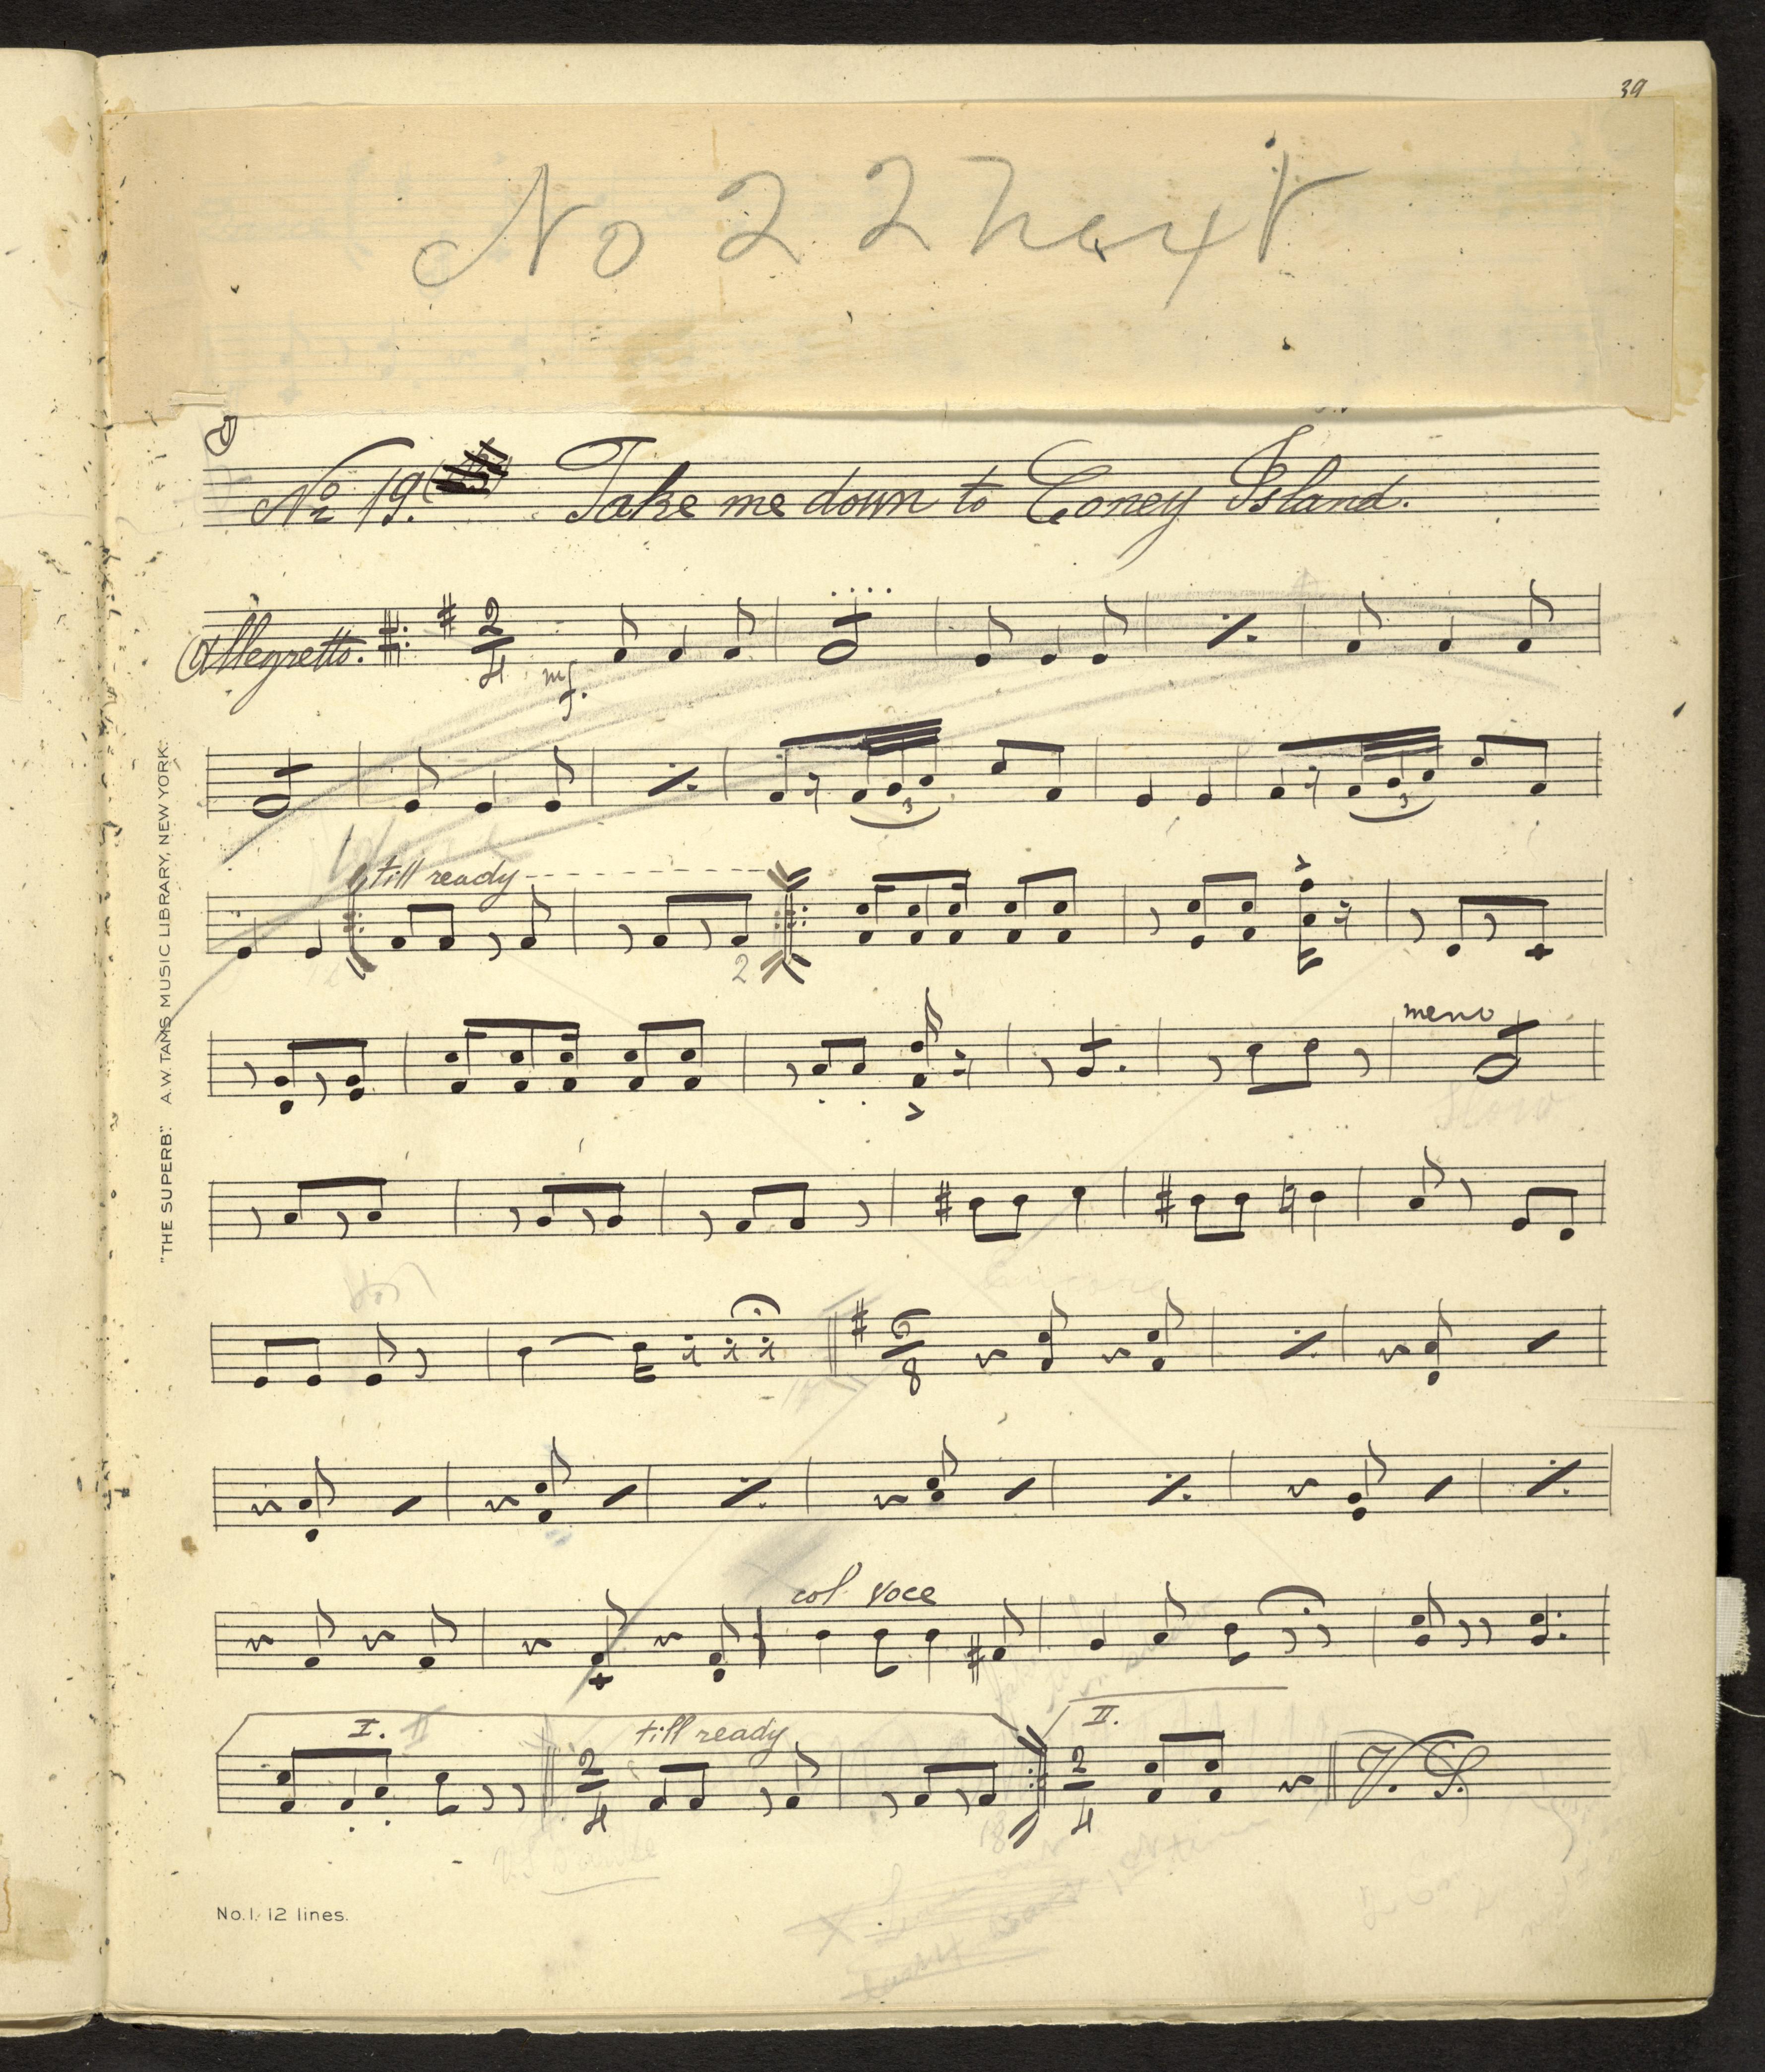 39
No 22 next
No 19. Take me down to Coney Island.
Allegretto. 2/4 mf.
3 3
till ready
2
meno
Slow
Encore
6/8
col voce
I. II 2/4 till ready II. 2/4 V. S.
18
X
"THE SUPERB". A.W. TAMS MUSIC LIBRARY, NEW YORK.
No. 1. 12 lines.